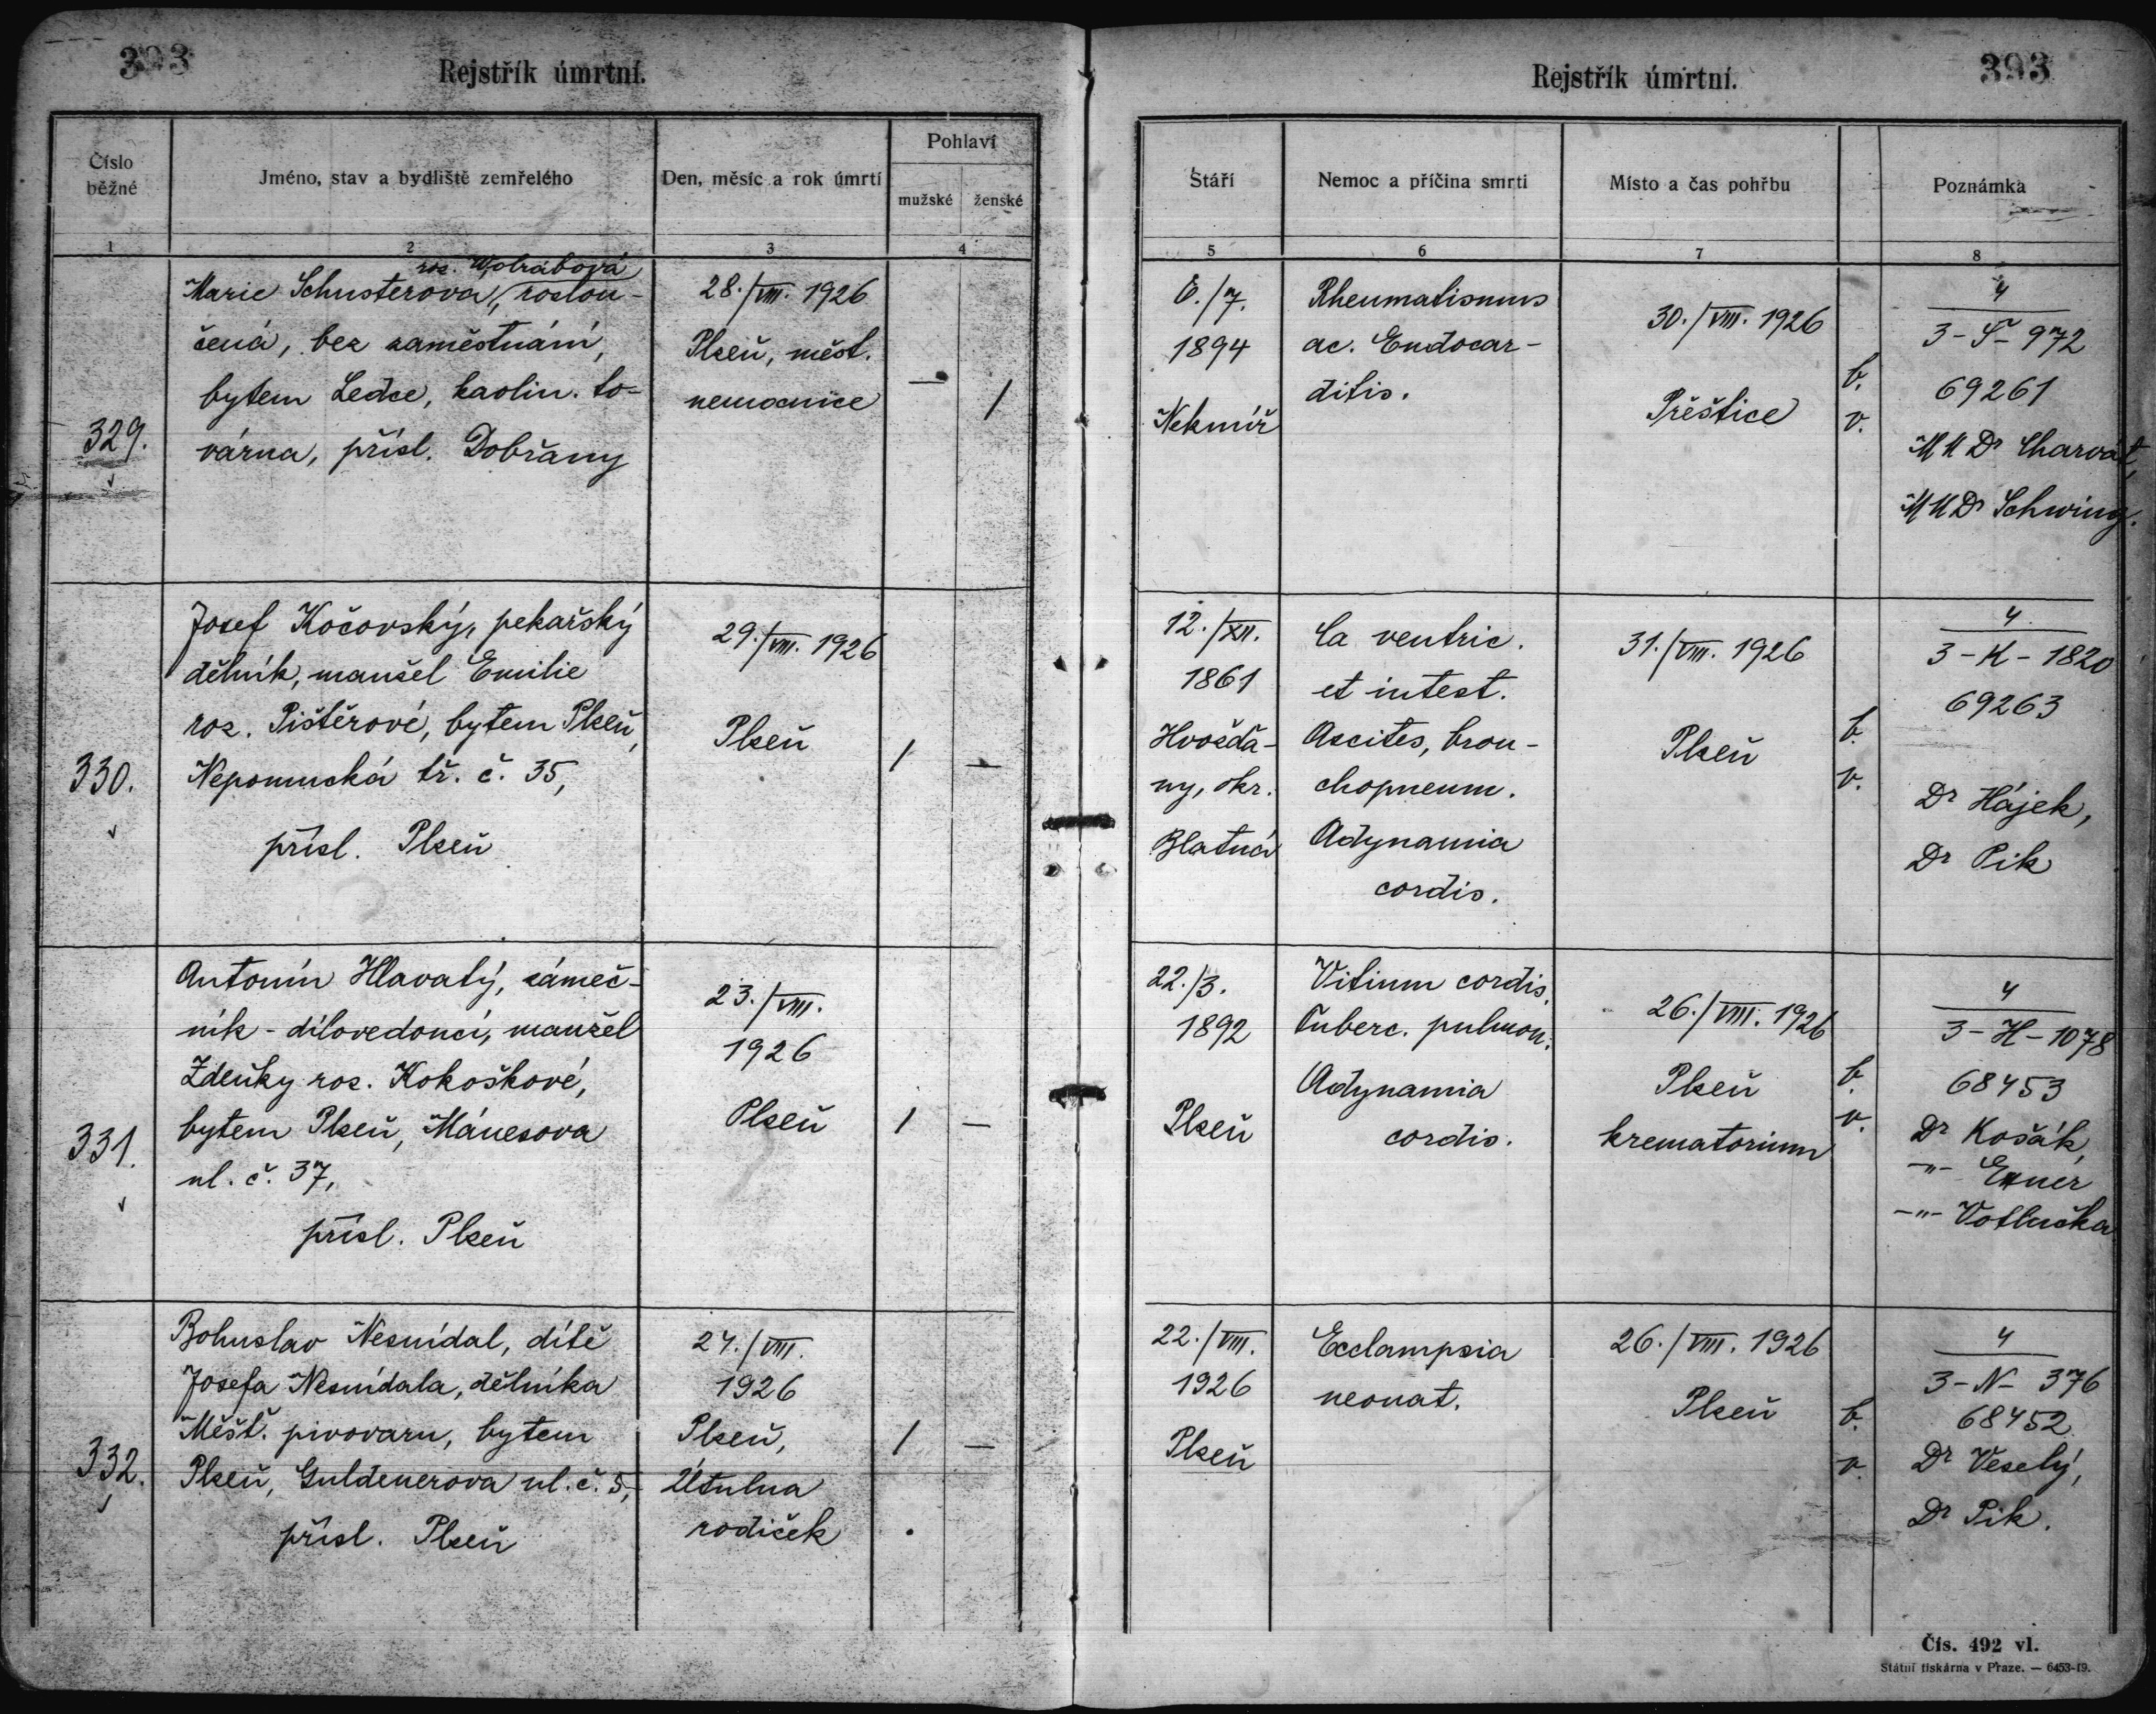 393
Rejstřík úmrtní.
Rejstřík úmrtní.
393
Číslo běžné
Jméno, stav a bydliště zemřelého
Den, měsíc a rok úmrtí
Pohlaví
mužské
ženské
Stáří
Nemoc a příčina smrti
Místo a čas pohřbu
Poznámka
1
2
3
4
5
6
7
8
329.
roz. Wolrábová
Marie Schusterova, rozlou-
čená, bez zaměstnání,
bytem Ledce, kaolin. to-
várna, přísl. Dobřany
28./VIII. 1926
Plzeň, měst.
nemocnice
—
/
6./7.
1894
Nekmíř
Rheumatismus
ac. Endocar-
ditis.
30./VIII. 1926
Přeštice
b.
v.
4
3-Š-972
69261
MUDr Charvát,
MUDr Schwing.
330.
Josef Kočovský, pekařský
dělník, manžel Emilie
roz. Pištěrové, bytem Plzeň,
Nepomucká tř. č. 35,
přísl. Plzeň
29./VIII. 1926
Plzeň
/
—
12./XII.
1861
Hvožďa-
ny, okr.
Blatná
Ca ventric.
et intest.
Ascites, bron-
chopneum.
Adynamia
cordis.
31./VIII. 1926
Plzeň
b.
v.
4
3-K-1820
69263
Dr Hájek,
Dr Pik
331.
Antonín Hlavatý, zámeč-
ník - dílovedoucí, manžel
Zdeňky roz. Kokoškové,
bytem Plzeň, Mánesova
ul. č. 37,
přísl. Plzeň
23./VIII.
1926
Plzeň
/
—
22./3.
1892
Plzeň
Vitium cordis.
Tuberc. pulmon.
Adynamia
cordis.
26./VIII. 1926
Plzeň
krematorium
b.
v.
4
3-H-1078
68453
Dr Košák,
-"- Exner
-"- Votlučka
332.
Bohuslav Nesnídal, dítě
Josefa Nesnídala, dělníka
Měšť. pivovaru, bytem
Plzeň, Guldenerova ul. č. 5,
přísl. Plzeň
24./VIII.
1926
Plzeň,
Útulna
rodiček
/
—
22./VIII.
1926
Plzeň
Ecclampsia
neonat.
26./VIII. 1926
Plzeň
b.
v.
4
3-N-376
68452
Dr Veselý,
Dr Pik.
Čís. 492 vl.
Státní tiskárna v Praze. — 6453-19.